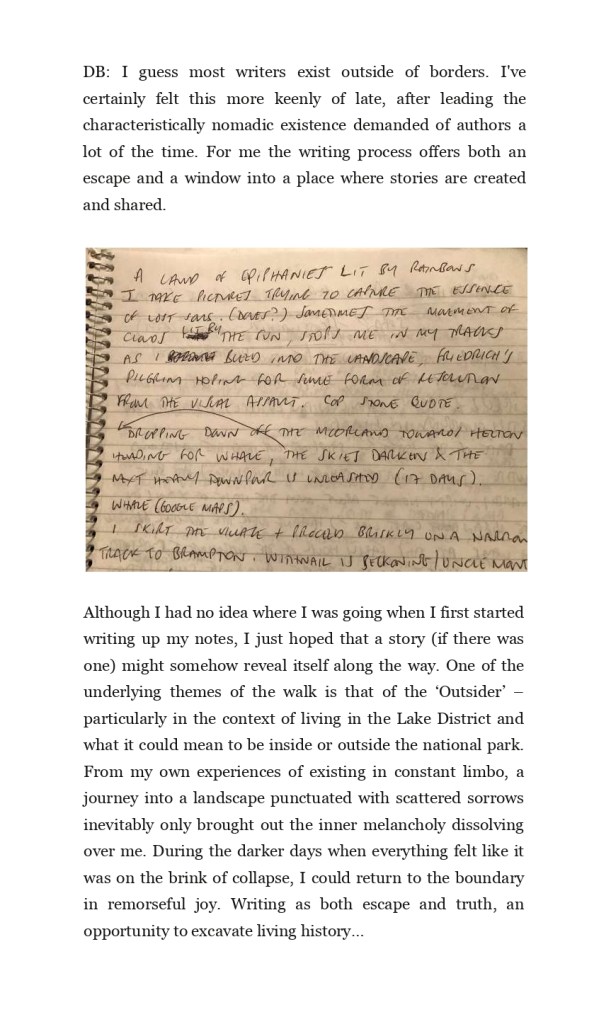 DB: I guess most writers exist outside of borders. I've
certainly felt this more keenly of late, after leading the
characteristically nomadic existence demanded of authors a
lot of the time. For me the writing process offers both an
escape and a window into a place where stories are created
and shared.
A LAND OF EPIPHANIES LIT BY RAINBOWS
I TAKE PICTURES TRYING TO CAPTURE THE ESSENCE
OF LOST (DAYS?) SOMETIMES THE MOVEMENT OF
CLOUDS LIT BY THE SUN, STOPS ME IN MY TRACKS
AS I BLEED INTO THE LANDSCAPE, FRIEDRICH'S
PILGRIM HOPING FOR SOME FORM OF RESOLUTION
FROM THE VISUAL ASSAULT. COP STONE QUOTE.
DROPPING DOWN OFF THE MOORLAND TOWARDS HELTON
HEADING FOR WHALE, THE SKIES DARKEN & THE
NEXT HEAVY DOWNPOUR IS UNLEASHED (17 DAYS).
WHALE (GOOGLE MAPS).
I SKIRT THE VILLAGE + PROCEED BRISKLY ON A NARROW
TRACK TO BRAMPTON. WITHNAIL IS BECKONING / UNCLE MONT
Although I had no idea where I was going when I first started
writing up my notes, I just hoped that a story (if there was
one) might somehow reveal itself along the way. One of the
underlying themes of the walk is that of the ‘Outsider’ –
particularly in the context of living in the Lake District and
what it could mean to be inside or outside the national park.
From my own experiences of existing in constant limbo, a
journey into a landscape punctuated with scattered sorrows
inevitably only brought out the inner melancholy dissolving
over me. During the darker days when everything felt like it
was on the brink of collapse, I could return to the boundary
in remorseful joy. Writing as both escape and truth, an
opportunity to excavate living history...